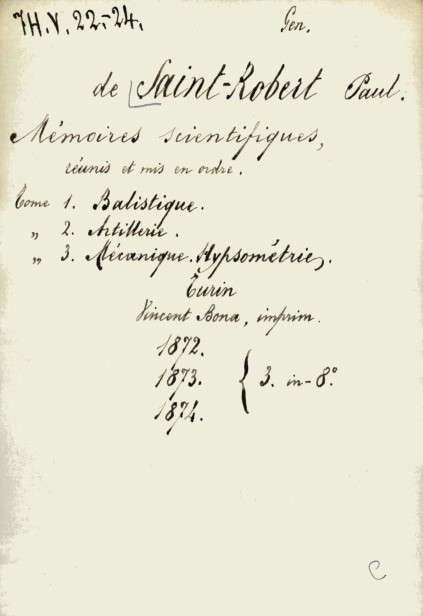 7H.V. 22.-24.
Gen.
de Saint-Robert Paul.
Mémoires scientifiques,
réunis et mis en ordre.
Tome 1. Balistique.
„ 2. Artillerie.
„ 3. Mécanique. Hypsométrie.
Turin
Vincent Bona, imprim.
1872.
1873. { 3. in-8°.
1874.
C